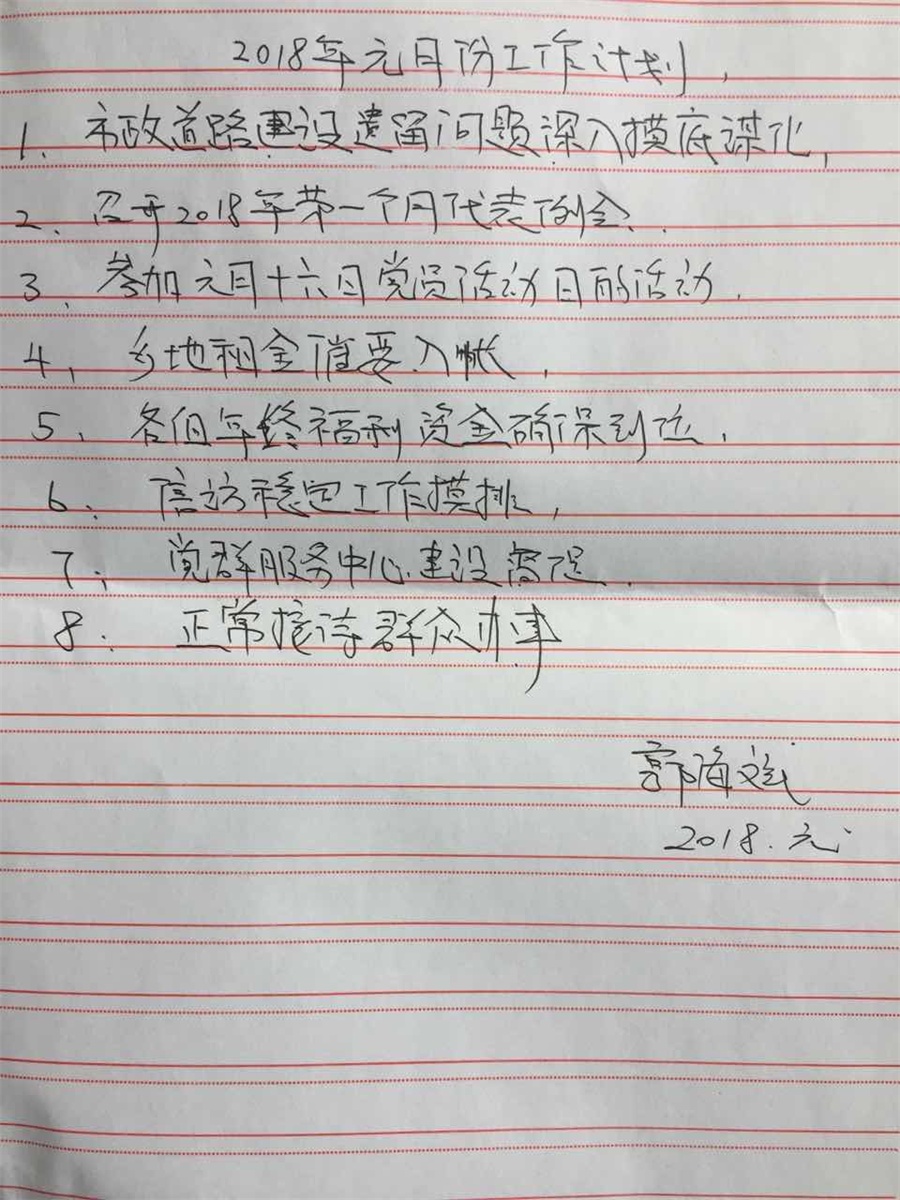 2018年元月份工作计划,
1、市政道路建设遗留问题深入摸底深化,
2、召开2018年第一个月代表例会、.
3、参加元月十六日党员活动日的活动.
4、乡地租金催要入帐,
5、各组年终福利资金确保到位,
6、信访稳定工作摸排,
7、党群服务中心建设督促.
8、正常接待群众办事
郭海斌
2018.元.